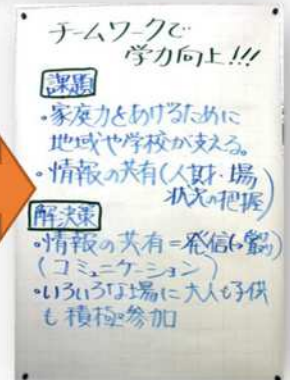 チームワークで
学力向上!!!
課題
・家庭力をあげるために
地域や学校が支える。
・情報の共有(人財・場
状況の把握)
解決策
・情報の共有=発信
(コミュニケーション)
・いろいろな場に大人も子供
も積極 参加